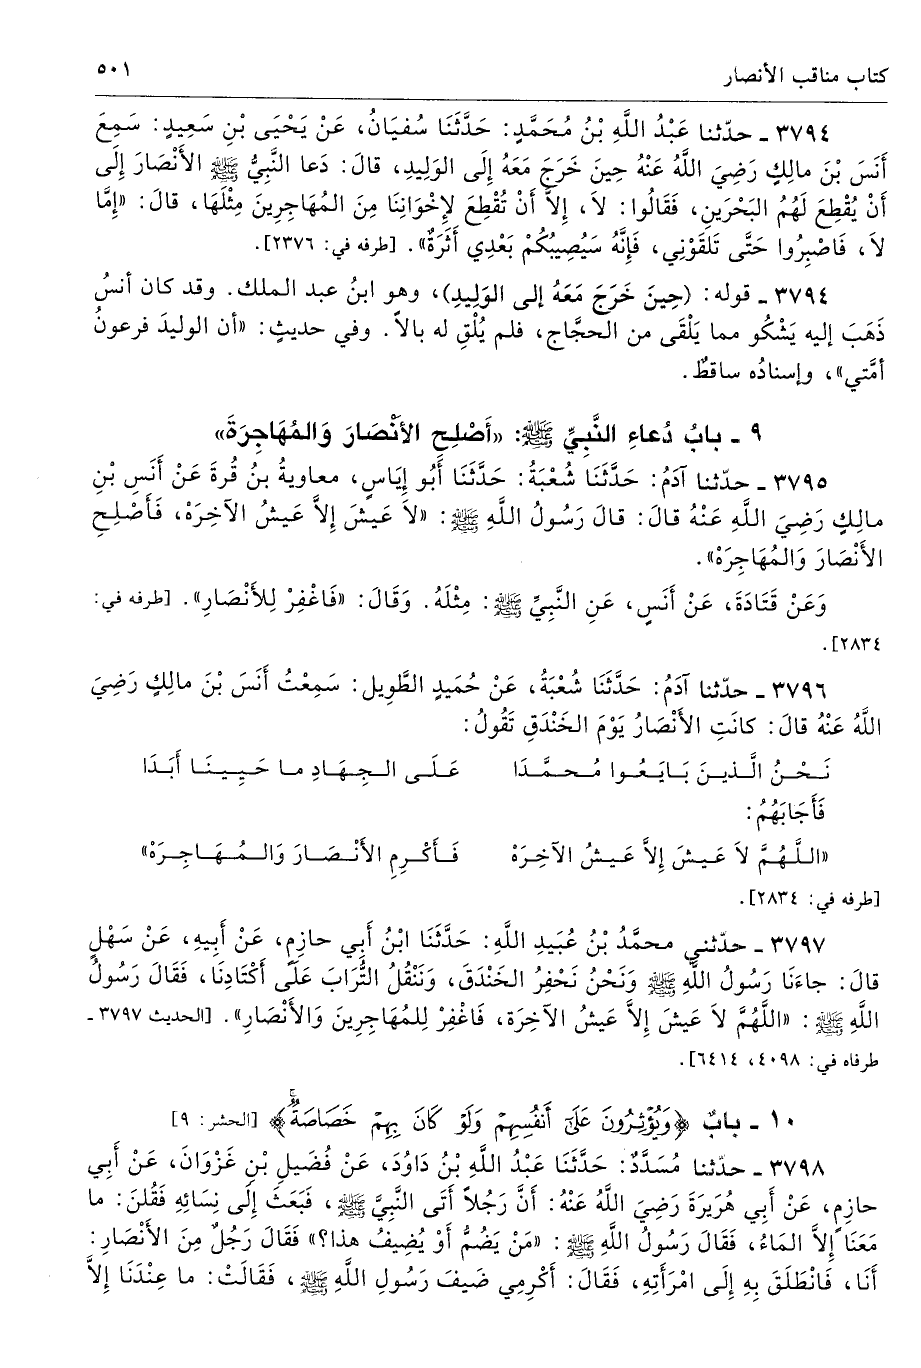 كتاب مناقب الأنصار ٥٠١
٣٧٩٤ ـ حدّثنا عَبْدُ اللَّهِ بْنُ مُحَمَّدٍ: حَدَّثَنَا سُفيَانُ، عَنْ يَحْيَى بْنِ سَعِيدٍ: سَمِعَ
أَنَسَ بْنَ مالِكٍ رَضِيَ اللَّهُ عَنْهُ حِينَ خَرَجَ مَعَهُ إِلَى الوَلِيدِ، قالَ: دَعا النَّبِيُّ ﷺ الأَنْصَارَ إِلَى
أَنْ يُقْطِعَ لَهُمُ البَحْرَينِ، فَقَالُوا: لاَ، إِلاَّ أَنْ تُقْطِعَ لإِخْوَانِنَا مِنَ المُهَاجِرِينَ مِثْلَهَا، قالَ: «إِمَّا
لاَ، فَاصْبِرُوا حَتَّى تَلقَوْنِي، فَإِنَّهُ سَيُصِيبُكُمْ بَعْدِي أَثَرَةٌ». [طرفه في: ٢٣٧٦].
٣٧٩٤ ـ قوله: (حِينَ خَرَجَ مَعَهُ إلى الوَلِيدِ)، وهو ابنُ عبد الملك. وقد كان أنسُ
ذَهَبَ إليه يَشْكُو مما يَلْقَى من الحجَّاج، فلم يُلْقِ له بالاً. وفي حديثٍ: «أن الوليدَ فرعونُ
أمَّتي»، وإسنادُه ساقطٌ.
٩ ـ بابُ دُعاءِ النَّبِيِّ ﷺ: «أَصْلِحِ الأَنْصَارَ وَالمُهَاجِرَةَ»
٣٧٩٥ ـ حدّثنا آدَمُ: حَدَّثَنَا شُعْبَةُ: حَدَّثَنَا أَبُو إِيَاسٍ، معاويةُ بنُ قُرةَ عَنْ أَنَسِ بْنِ
مالِكٍ رَضِيَ اللَّهِ عَنْهُ قالَ: قالَ رَسُولُ اللَّهِ ﷺ: «لاَ عَيشَ إِلاَّ عَيشُ الآخِرَهْ، فَأَصْلِحِ
الأَنْصَارَ وَالمُهَاجِرَهْ».
وَعَنْ قَتَادَةَ، عَنْ أَنَسٍ، عَنِ النَّبِيِّ ﷺ: مِثْلَهُ. وَقَالَ: «فَاغْفِرْ لِلأَنْصَارِ». [طرفه في:
٢٨٣٤].
٣٧٩٦ ـ حدّثنا آدَمُ: حَدَّثَنَا شُعْبَةُ، عَنْ حُمَيدٍ الطَّوِيلِ: سَمِعْتُ أَنَسَ بْنَ مالِكٍ رَضِيَ
اللَّهُ عَنْهُ قالَ: كانَتِ الأَنْصَارُ يَوْمَ الخَنْدَقِ تَقُولُ:
نَحْنُ الَّذِينَ بَايَعُوا مُحمَّدَا عَلَى الجِهَادِ ما حَيِينَا أَبَدَا
فَأَجَابَهُمُ:
«اللَّهُمَّ لاَ عَيشَ إِلاَّ عَيشُ الآخِرَهْ فَأَكْرِمِ الأَنْصَارَ وَالمُهَاجِرَهْ»
[طرفه في: ٢٨٣٤].
٣٧٩٧ ـ حدّثني محمَّدُ بْنُ عُبَيدِ اللَّهِ: حَدَّثَنَا ابْنُ أَبِي حازِمٍ، عَنْ أَبِيهِ، عَنْ سَهْلٍ
قالَ: جاءَنَا رَسُولُ اللَّهِ ﷺ وَنَحْنُ نَحْفِرُ الخَنْدَقَ، وَنَنْقُلُ التُّرَابَ عَلَى أَكْتَادِنَا، فَقَالَ رَسُولُ
اللَّهِ ﷺ: «اللَّهُمَّ لاَ عَيشَ إِلاَّ عَيشُ الآخِرَة، فَاغْفِرْ لِلمُهَاجِرِينَ وَالأَنْصَارِ». [الحديث ٣٧٩٧ ـ
طرفاه في: ٤٠٩٨، ٦٤١٤].
١٠ ـ بابٌ ﴿وَيُؤْثِرُونَ عَلَىٰ أَنفُسِهِمْ وَلَوْ كَانَ بِهِمْ خَصَاصَةٌ ۚ﴾ [الحشر: ٩]
٣٧٩٨ ـ حدّثنا مُسَدَّدٌ: حَدَّثَنَا عَبْدُ اللَّهِ بْنُ دَاوُدَ، عَنْ فُضَيلِ بْنِ غَزْوَانَ، عَنْ أَبِي
حازِمٍ، عَنْ أَبِي هُرَيرَةَ رَضِيَ اللَّهُ عَنْهُ: أَنَّ رَجُلاً أَتَى النَّبِيَّ ﷺ، فَبَعَثَ إِلَى نِسَائِهِ فَقُلنَ: ما
مَعَنَا إِلاَّ المَاءُ، فَقَالَ رَسُولُ اللَّهِ ﷺ: «مَنْ يَضُمُّ أَوْ يُضِيفُ هذا؟» فَقَالَ رَجُلٌ مِنَ الأَنْصَارِ:
أَنَا، فَانْطَلَقَ بِهِ إِلَى امْرَأَتِهِ، فَقَالَ: أَكْرِمِي ضَيفَ رَسُولِ اللَّهِ ﷺ، فَقَالَتْ: ما عِنْدَنَا إِلاَّ